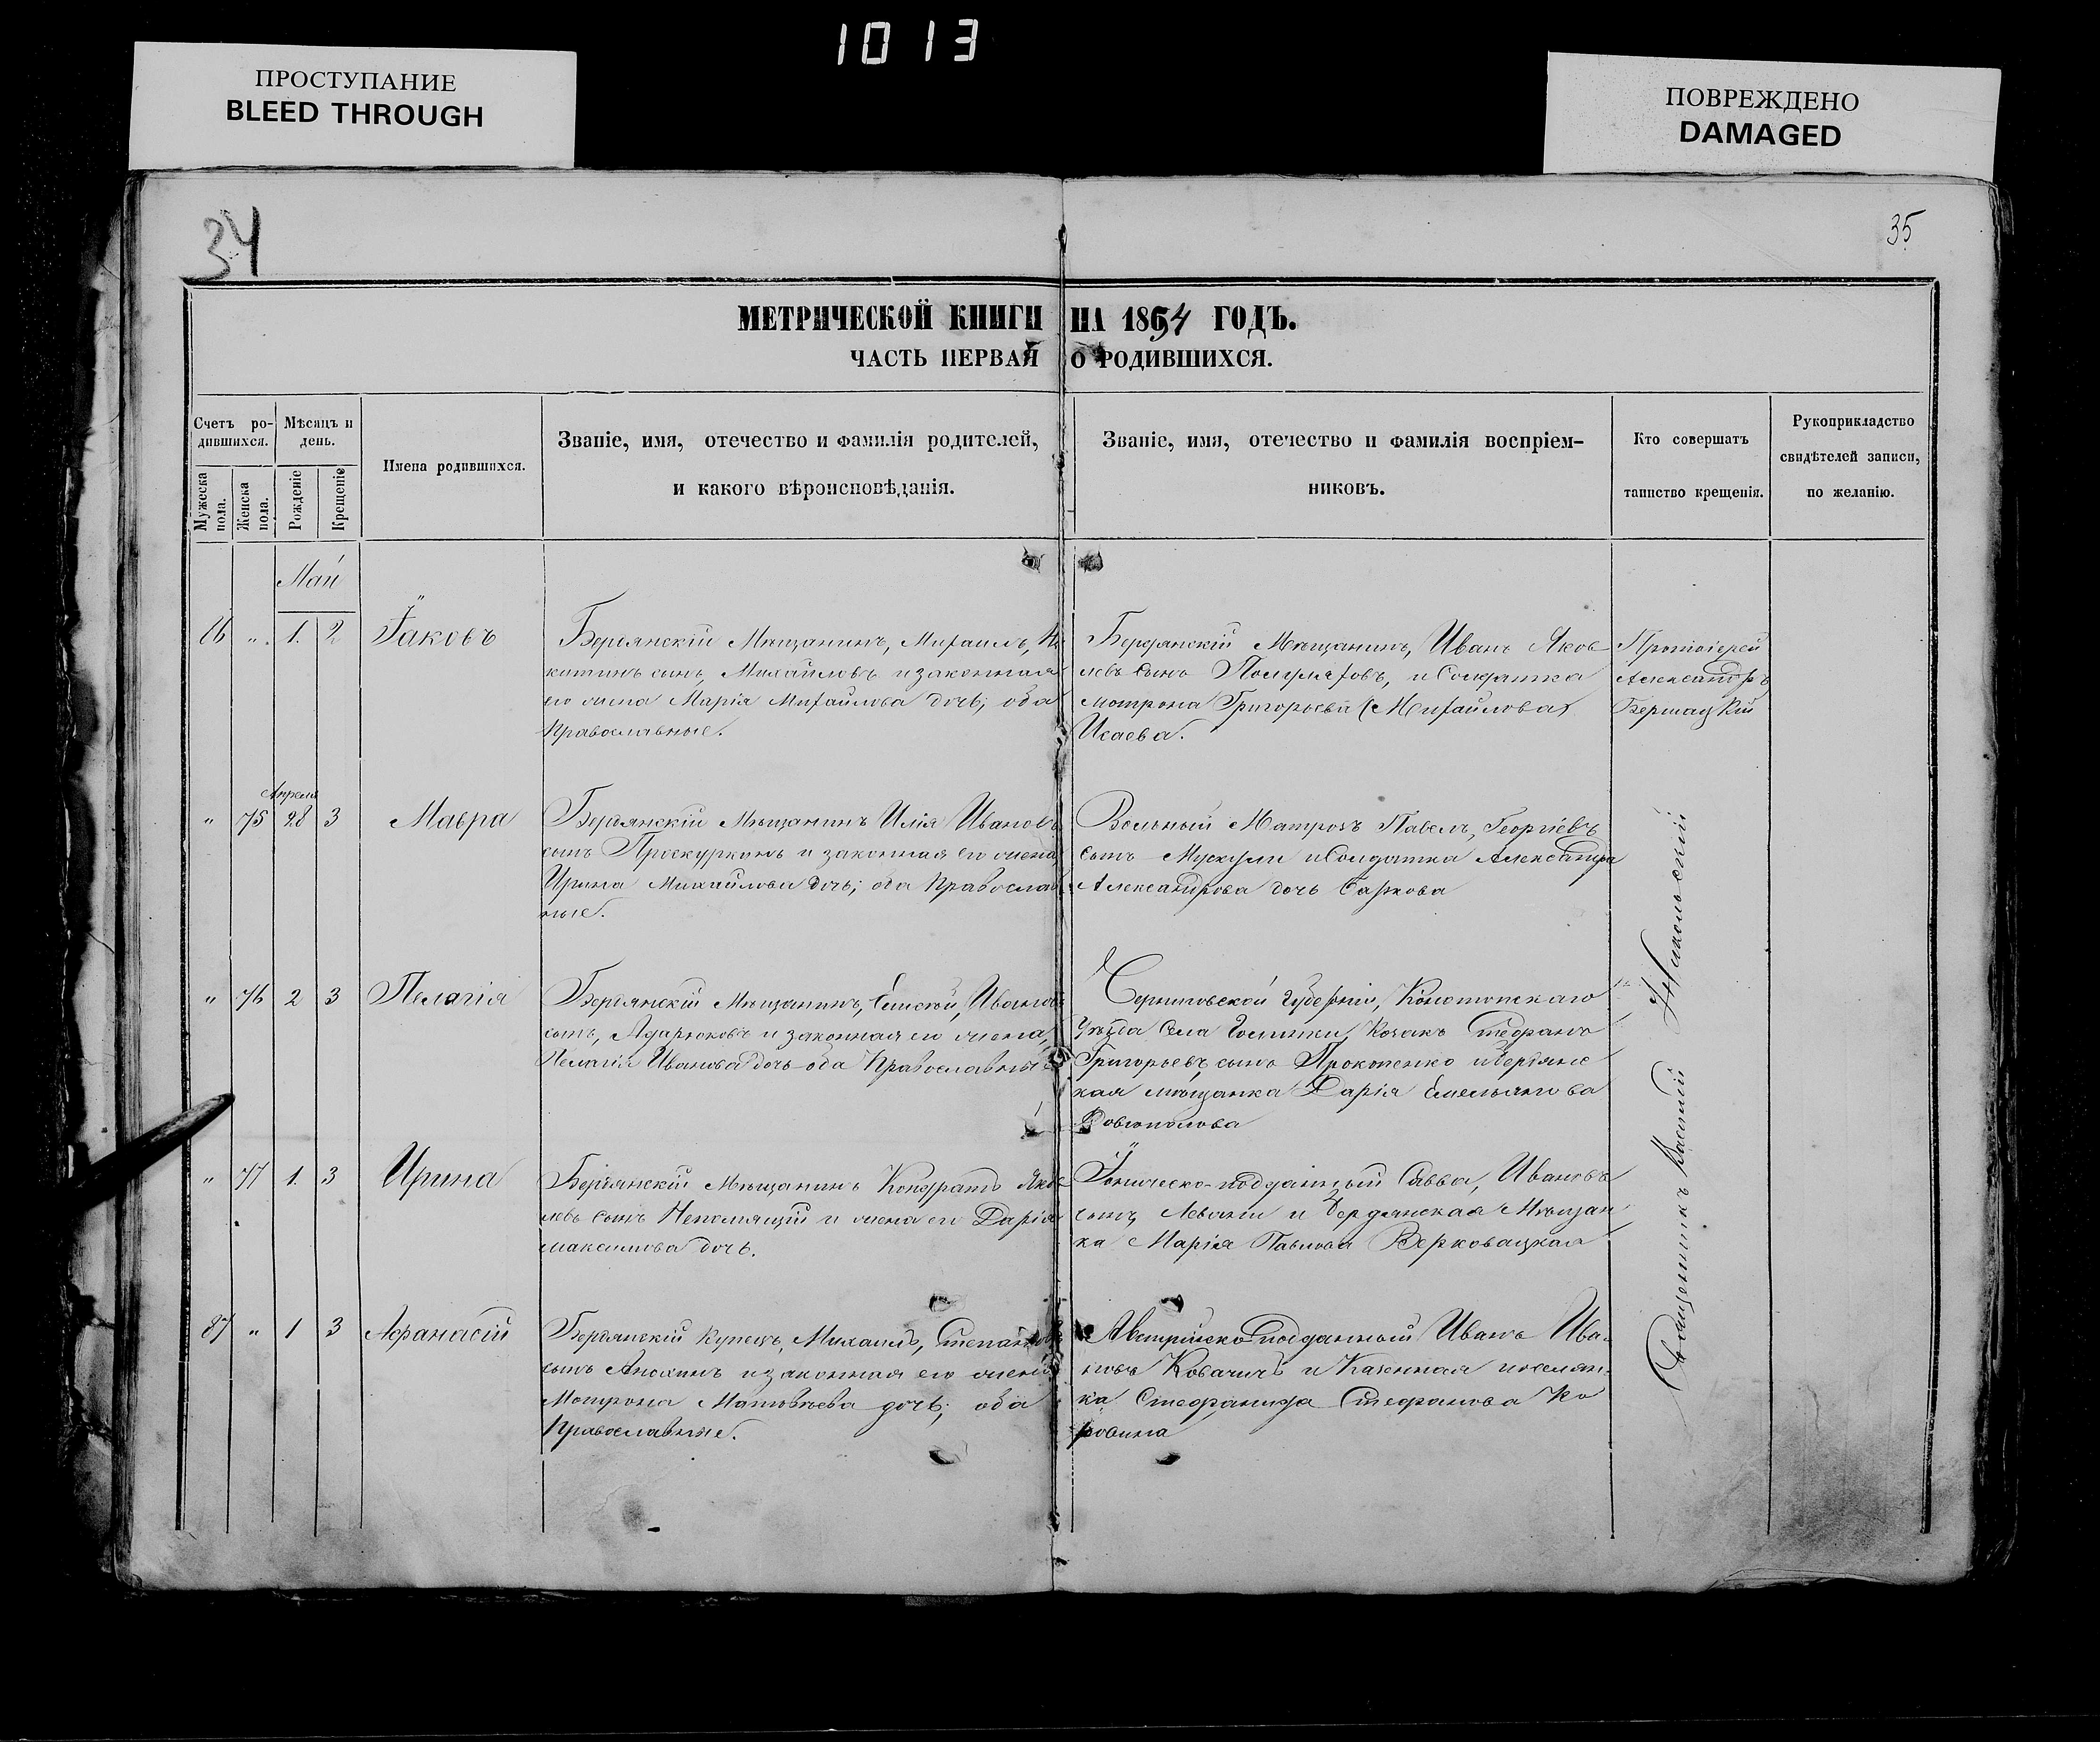 1013
ПРОСТУПАНИЕ
BLEED THROUGH
ПОВРЕЖДЕНО
DAMAGED
34
35
МЕТРИЧЕСКОЙ КНИГИ НА 1854 ГОДЪ.
ЧАСТЬ ПЕРВАЯ О РОДИВШИХСЯ.
Счетъ ро-
дившихся.
Мужеска
пола.
Женска
пола.
Мѣсяцъ и
день.
Рожденіе
Крещеніе
Имена родившихся.
Званіе, имя, отечество и фамилія родителей,
и какого вѣроисповѣданія.
Званіе, имя, отечество и фамилія воспріем-
никовъ.
Кто совершатъ
таинство крещенія.
Рукоприкладство
свидѣтелей записи,
по желанію.
Май
" 1. 2 Іаковъ
Бердянскій Мѣщанинъ, Михаилъ, Ни
китинъ сынъ, Михайловъ и законная
его жена Марія Михайлова дочь; оба
Православные.
Бердянскій Мѣщанинъ, Иванъ Яков
левъ сынъ и Солдатка
Мотрона Григорьева (Михайлова)
Исаева.
Протоіерей
Александръ
Апреля
" 75 28 3 Мавра
Бердянскій Мѣщанинъ Илія Ивановъ
сынъ и законная его жена
Ирина Михайлова дочь; оба Православ
ные.
Вольный Матрозъ Павелъ, Георгіевъ
сынъ и Солдатка Александра
Александрова дочь
" 76 2 3 Пелагія
Бердянскій Мѣщанинъ, Елисей, Ивановъ
сынъ, и законная его жена,
Пелагія Иванова дочь оба Православные
Черниговской Губерніи, Конотопскаго
уѣзда Села Козакъ Стефанъ
Григорьевъ сынъ и Бердянс
кая мѣщанка Дарія Емельянова
" 77 1. 3 Ирина
Бердянскій Мѣщанинъ Кондратъ Яков
левъ сынъ Непомящій и жена его Дарія
Максимова дочь.
Іоническо-подданный Савва, Ивановъ
сынъ, и Бердянская Мѣщан
ка Марія Павлова Верковацкая
87 " 1 3 Афанасій
Бердянскій Купецъ, Михаилъ, Степановъ
сынъ Анохинъ и законная его жена
Мотрона Матвѣева дочь; оба
Православные.
Австрійско подданный Иванъ Ива-
новъ Ковачичъ и Казенная поселян-
ка Стефанида Стефанова Ко
ровина
Священникъ Василій Никольскій